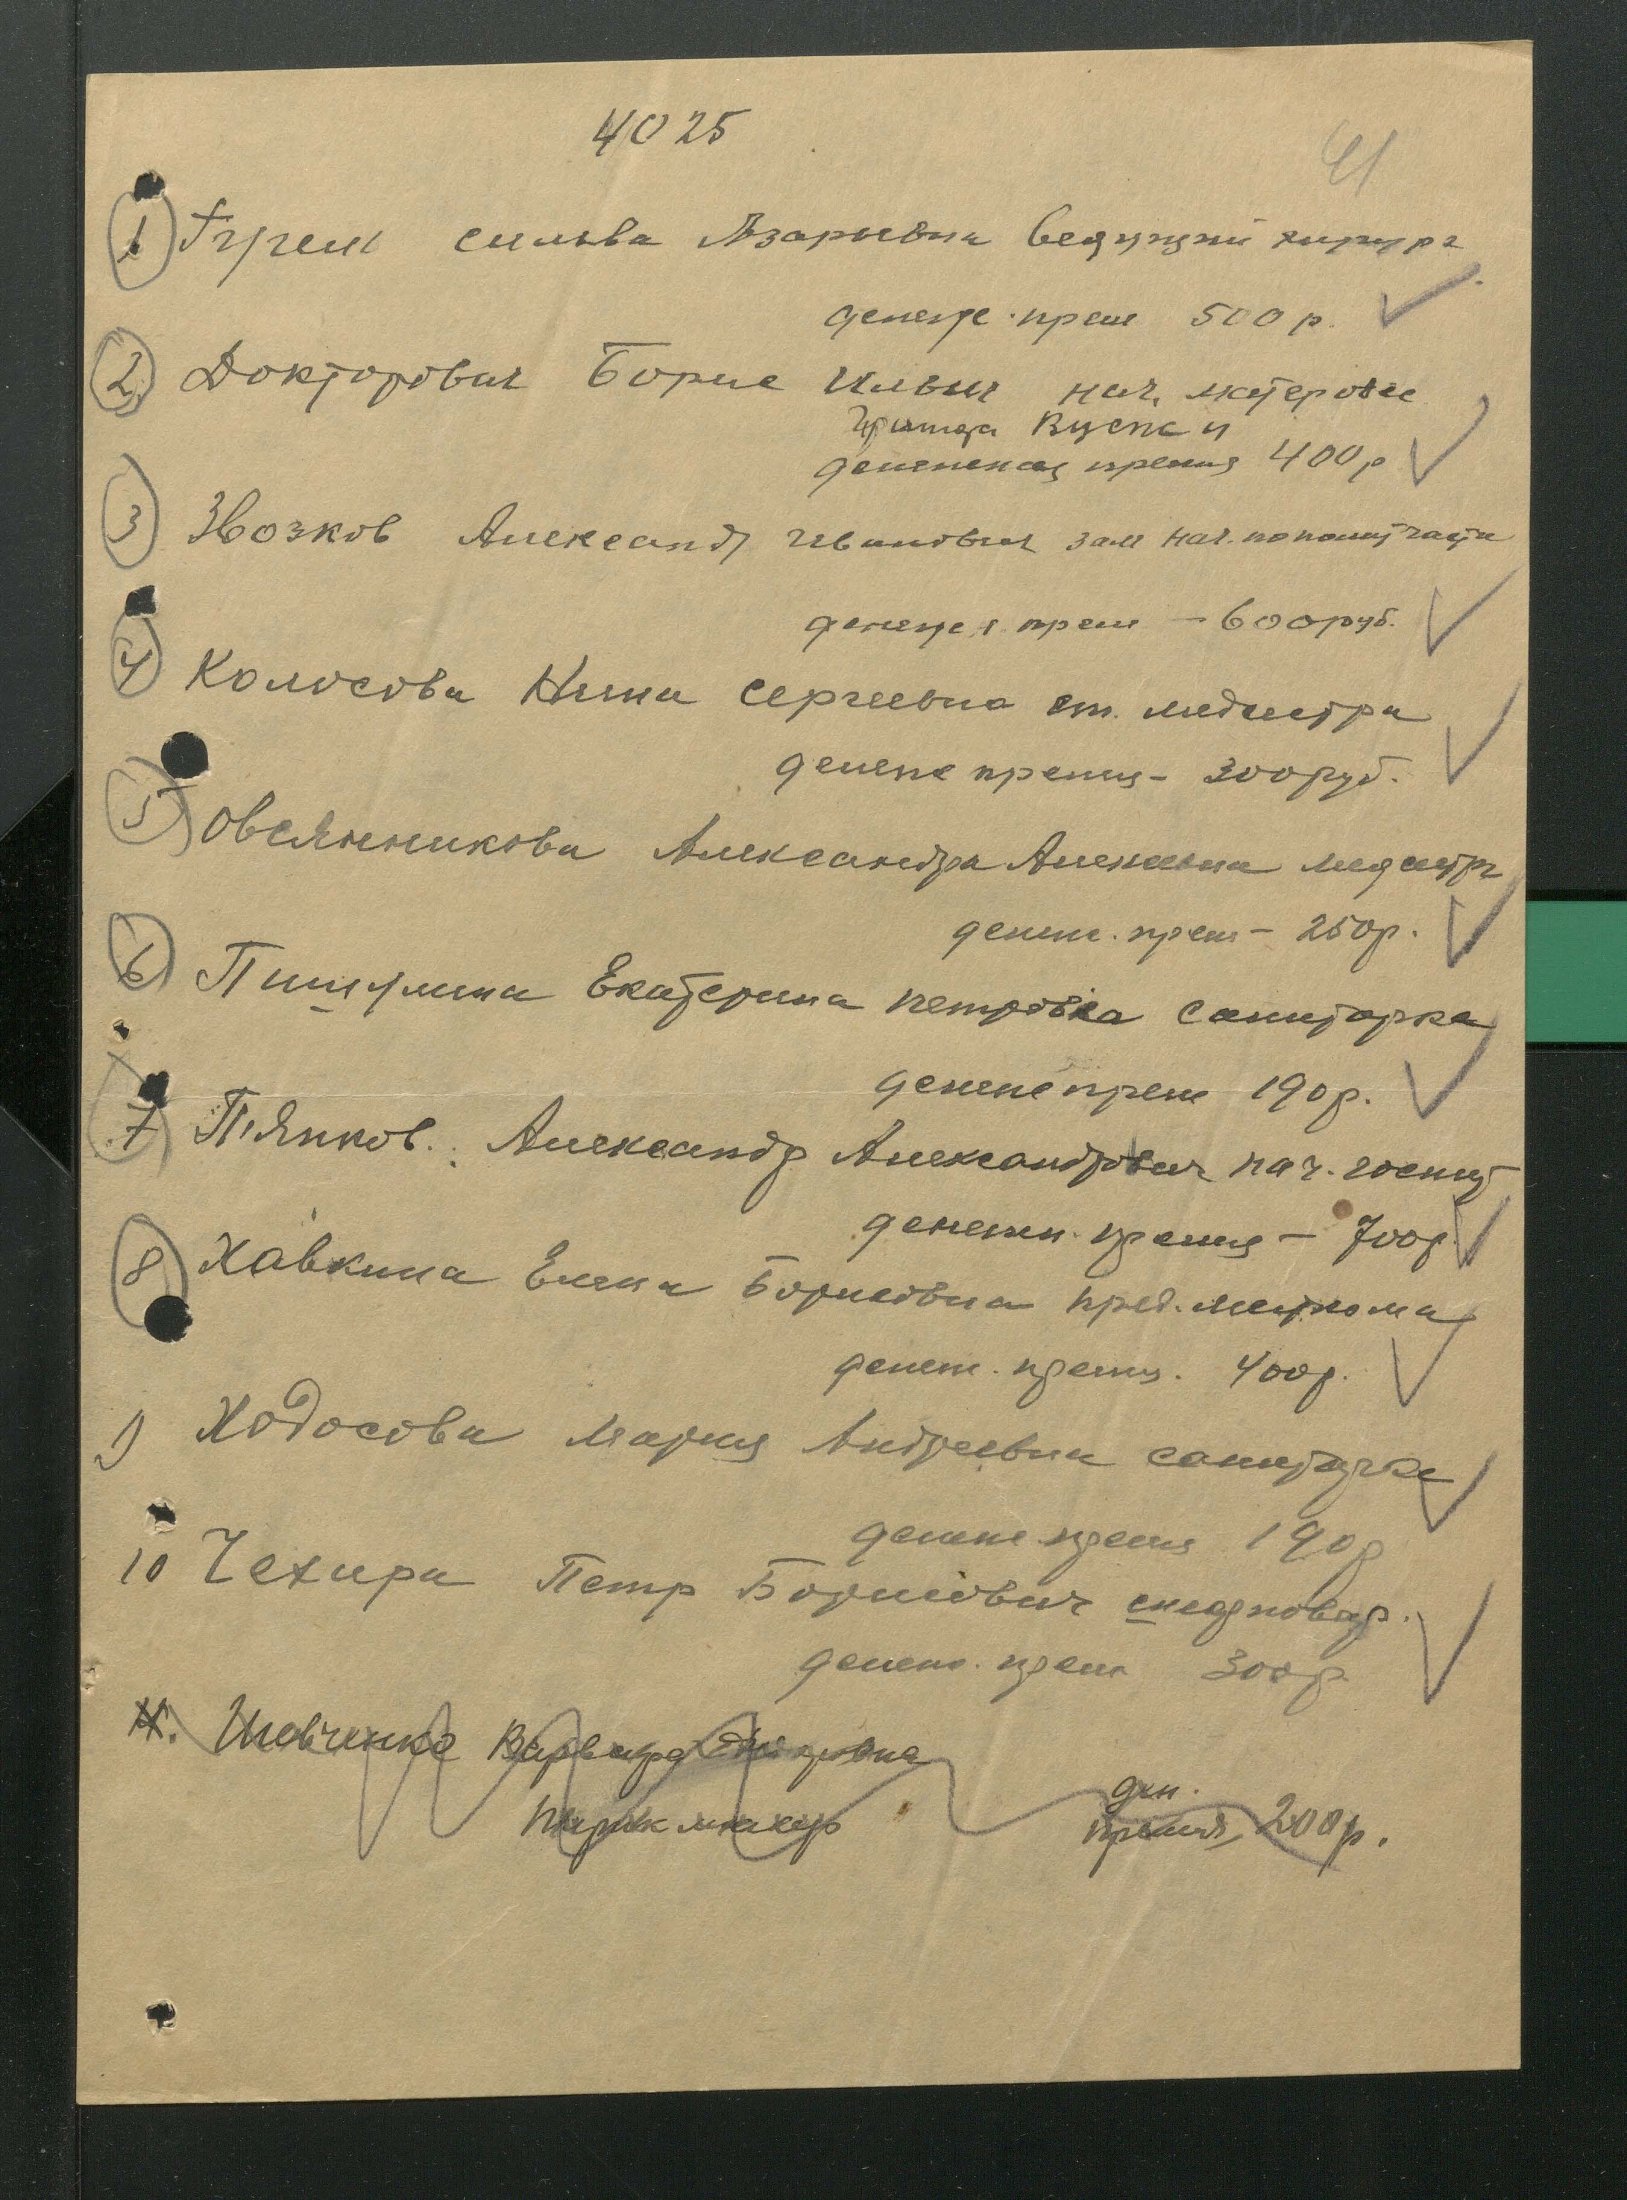 4025
41
1 сильва Азарьевна Ведущий хирург
денеж. прем 500 р.
2 Докторович Борис Ильич нач.
Грамота ВЦСПС и
денежная премия 400 р
3 Звозков Александр Иванович зам нач. по полит части
денеж. прем – 600 руб.
4 Колосова Нина Сергеевна ст. медсестра
денеж премия – 300 руб.
5 Овсянникова Александра медсестра
денеж. прем – 250 р.
6 Екатерина Петровна Санитарка
денеж прем 190 р.
7 Пьянков. Александр Александрович нач. госпит
денежн. премия – 700 р.
8 Хавкина Елена Борисовна пред. месткома
денеж. премия. 400 р.
9 Ходосова Мария Андреевна санитарка
денеж премия 190 р
10 Чехира Петр Борисович
денеж. прем 300 р
11. Шевченко Варвара
ден.
парикмахер премия 200 р.